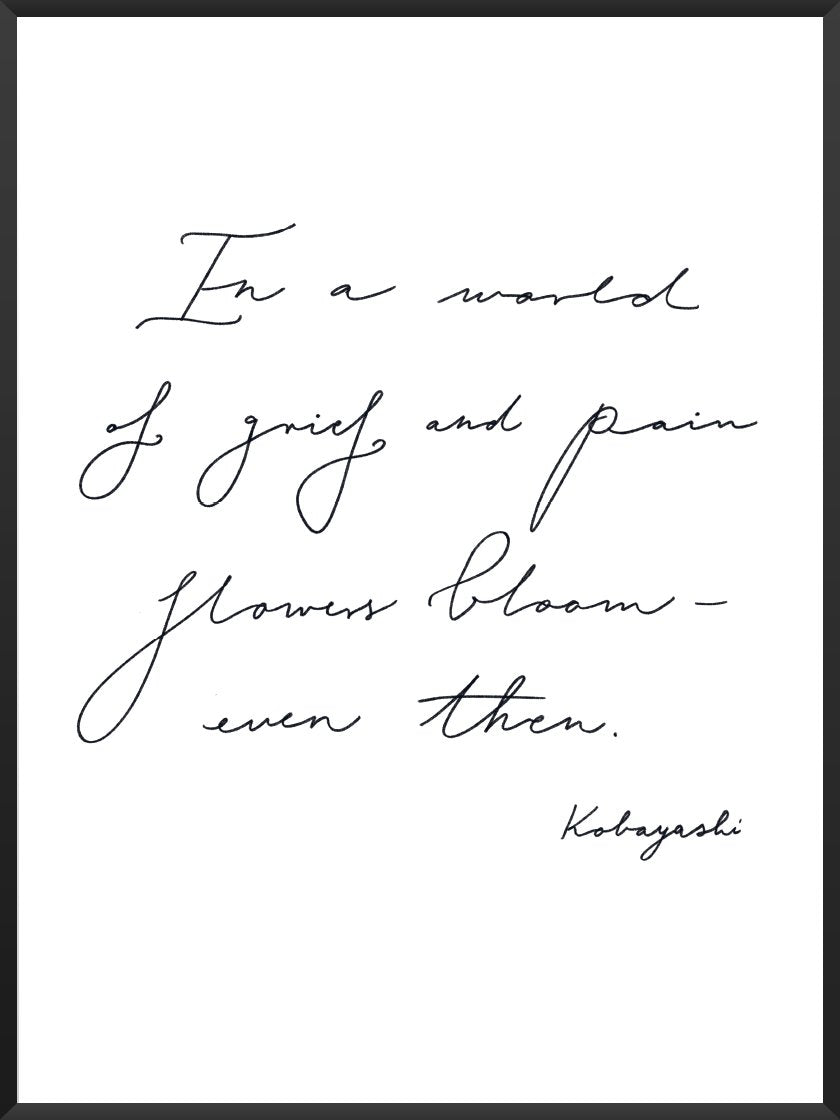 In a world
of grief and pain
flowers bloom –
even then.
Kobayashi